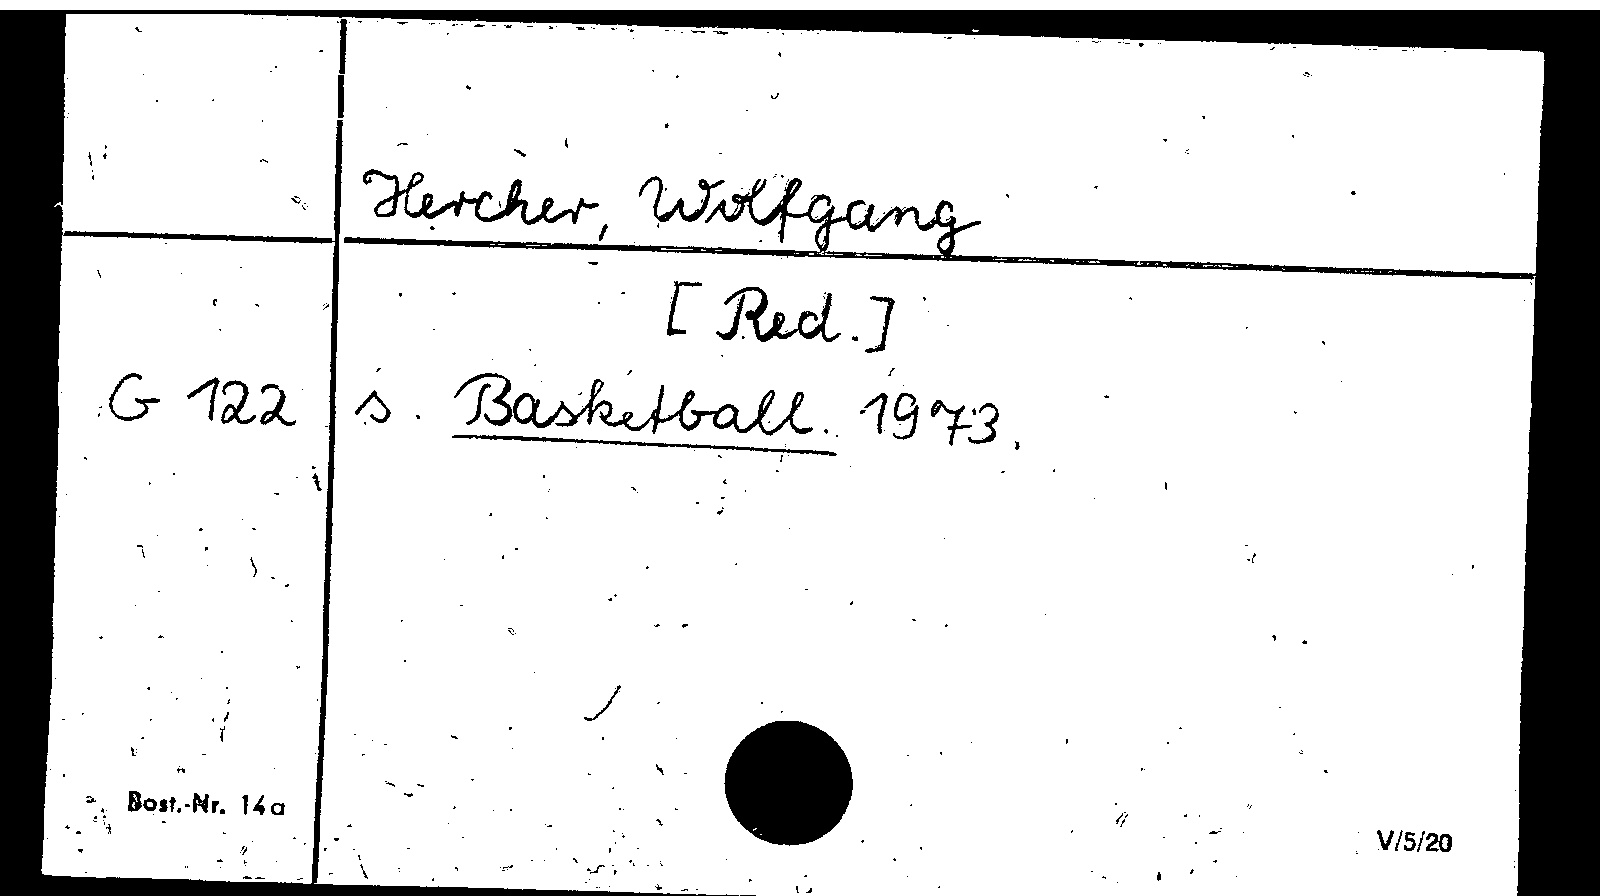 Hercher, Wolfgang
[Red.]
G 122 s. Basketball. 1973.
Bost.-Nr. 14a
V/5/20